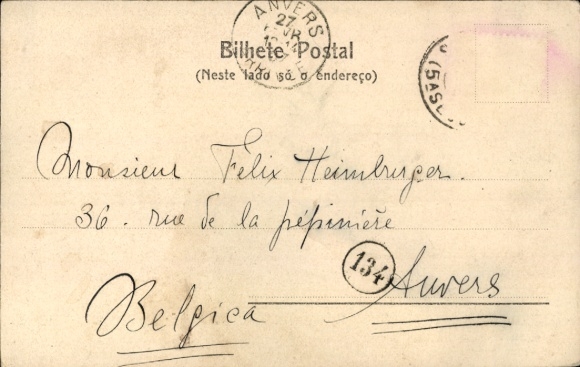 ANVERS
27
Bilhete Postal
(Neste lado só o endereço)
Monsieur Félix Heimburger.
36. rue de la pépinière
134
Anvers
Belgica